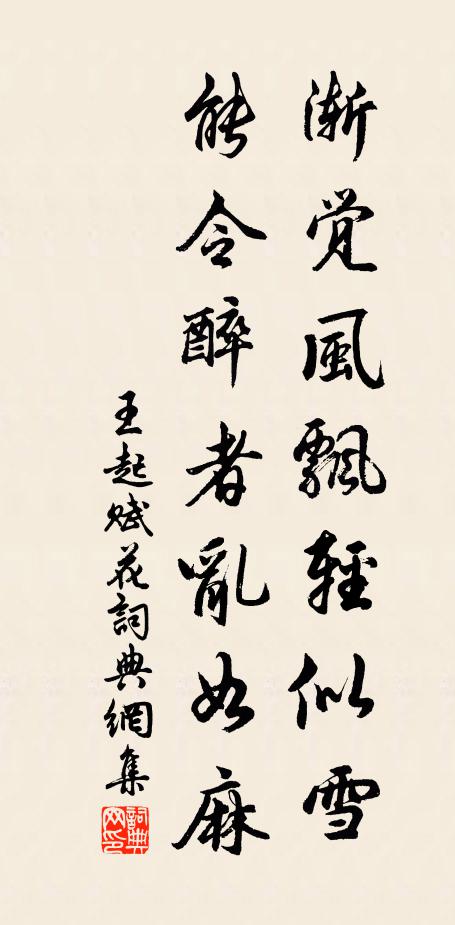 漸覺風飄輕似雪
能令醉者亂如麻
王起賦花詞典網集
詞典
网印